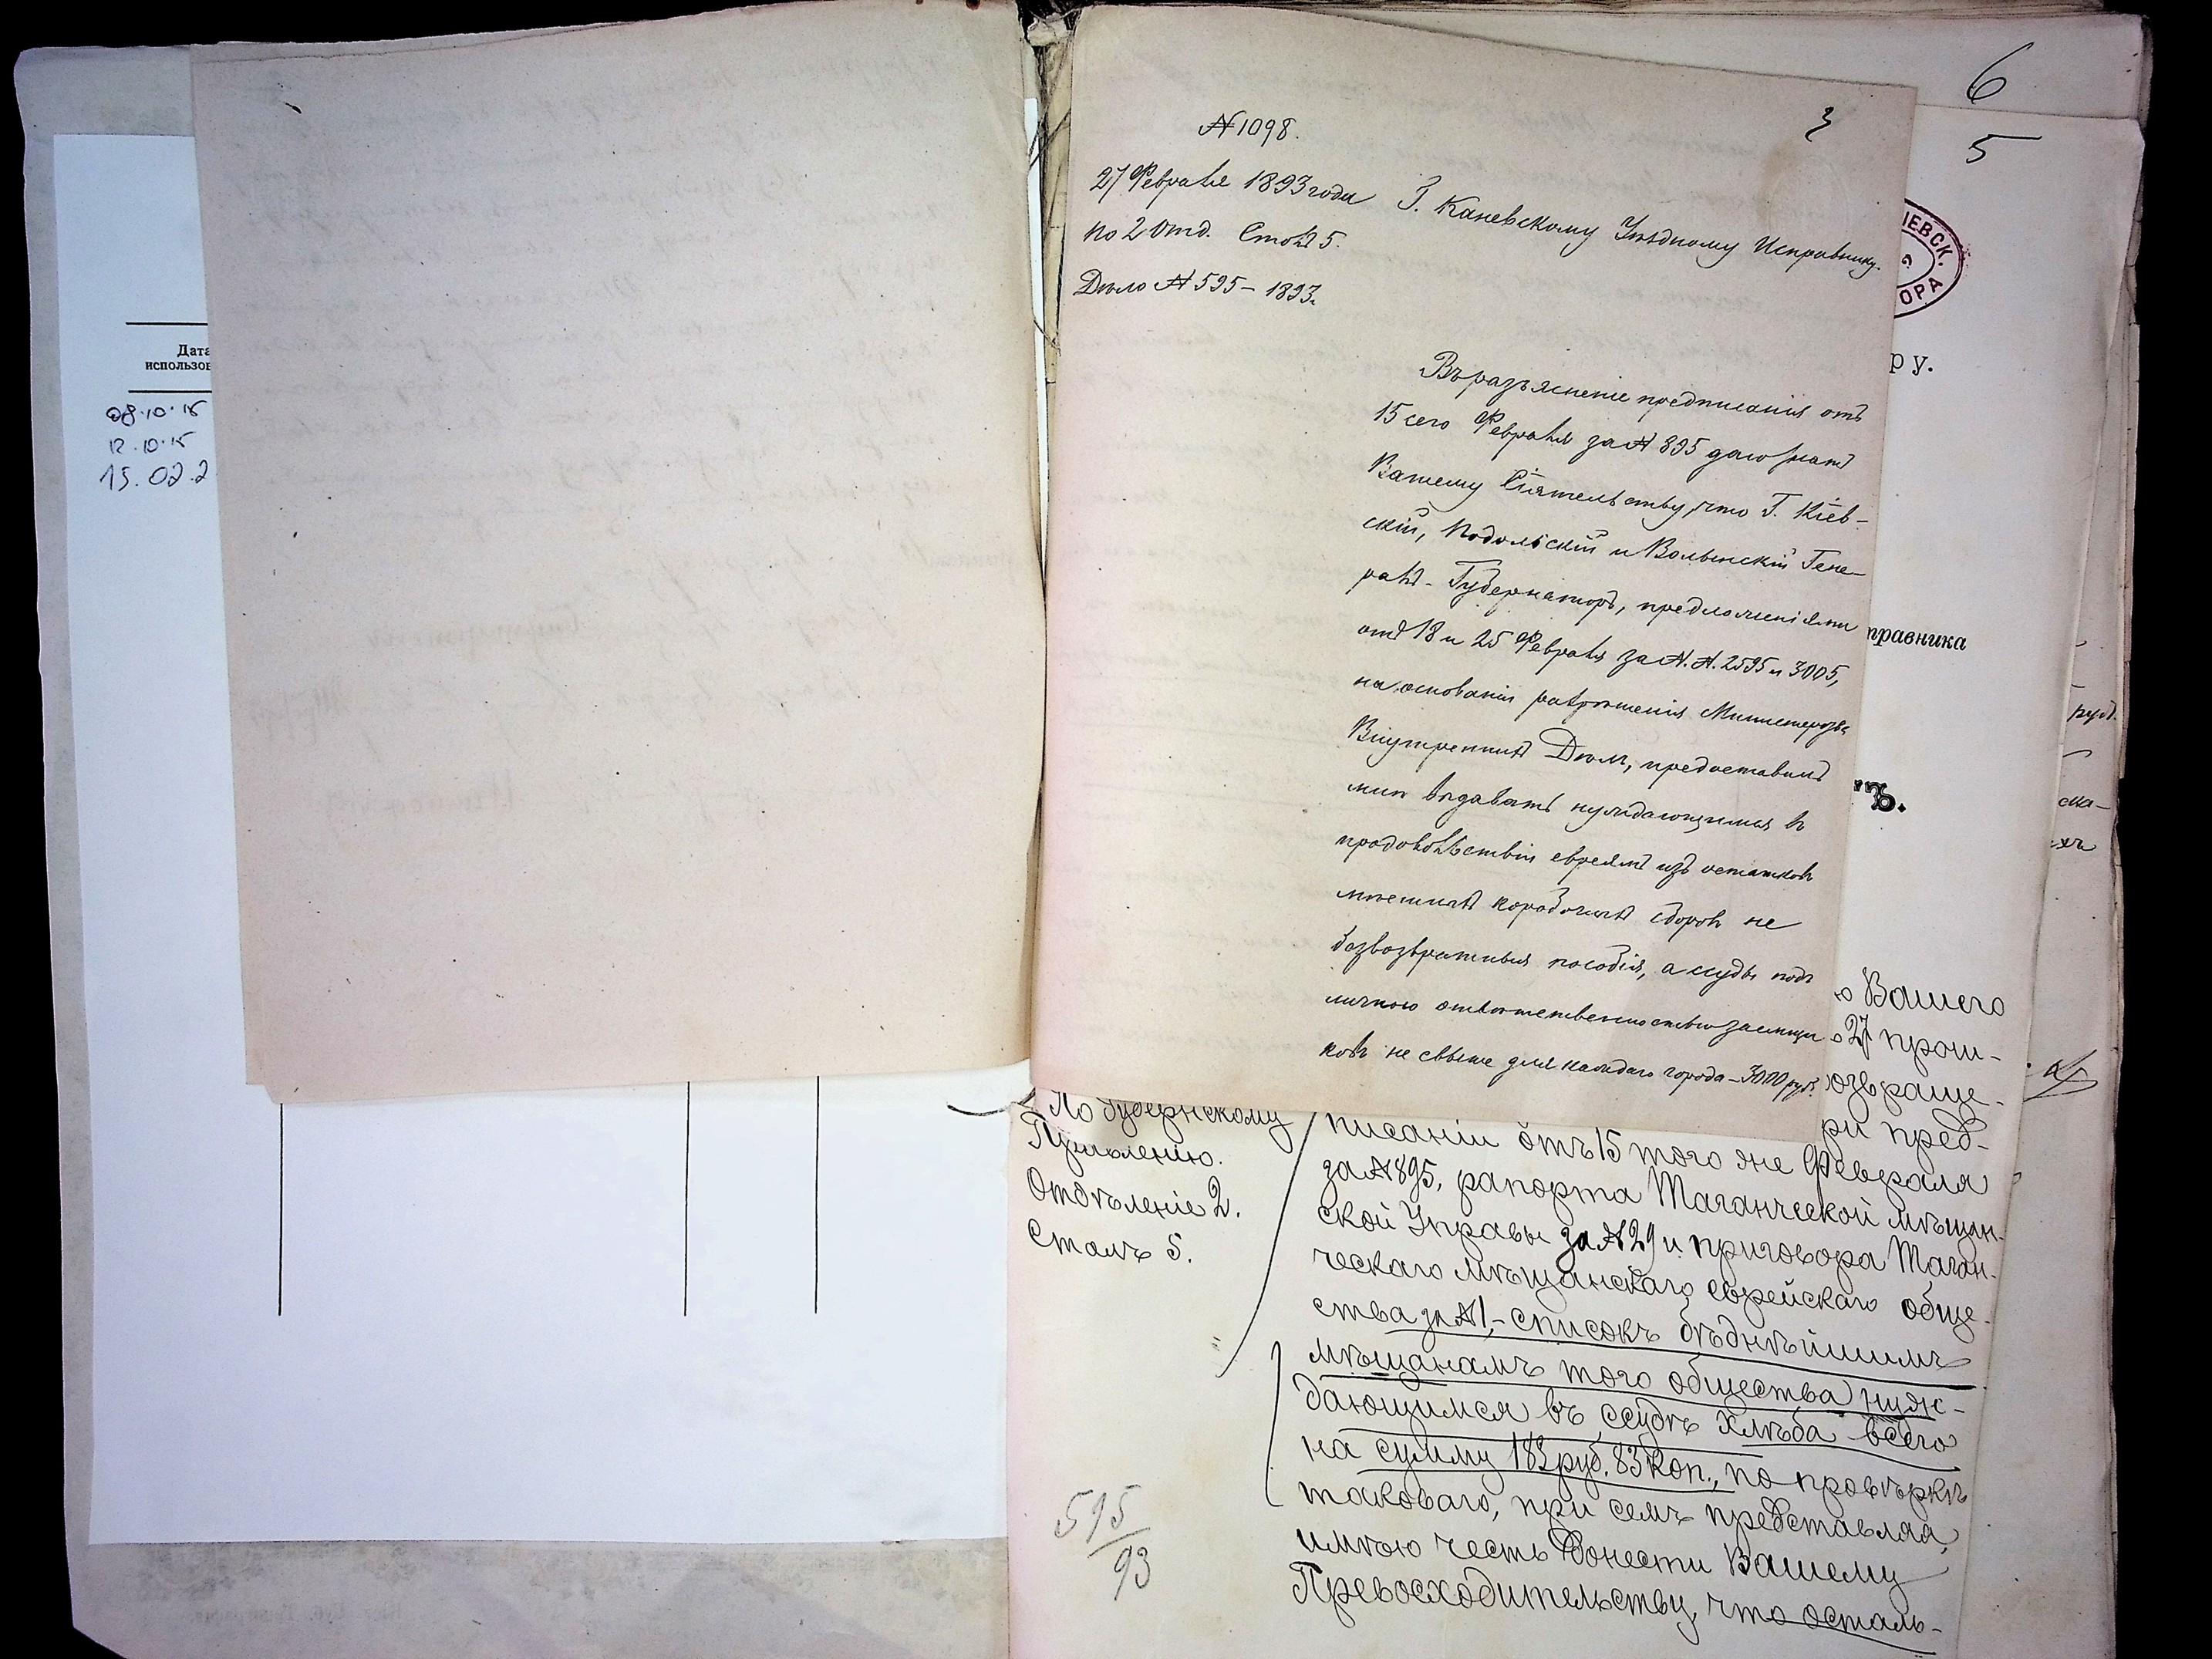 6
5
3
№ 1098.
27 Февраля 1893 года
по 2 Отд. Столъ 5.
Дѣло № 595 – 1893 г.
Г. Каневскому Уѣздному Исправнику.
Въ разъясненіе предписанія отъ
15 сего Февраля за № 895 даю знать
Вашему Сіятельству, что Г. Кіев-
скій, Подольскій и Волынскій Гене-
ралъ-Губернаторъ, предложеніями
отъ 18 и 25 Февраля за №.№. 2595 и 3005,
на основаніи разрѣшенія Министерства
Внутреннихъ Дѣлъ, предоставилъ
мнѣ выдавать нуждающимся въ
продовольствіи евреямъ изъ остатковъ
мѣстныхъ коробочныхъ сборовъ не
безвозвратныя пособія, а ссуды подъ
личною отвѣтственностью заемщи
ковъ не свыше для каждаго города – 3000 руб.
Дата
использов
08.10.15
12.10.15
15.02.2
ІЕВСК.
ОРА
ру.
правника
ъ.
руб.
Вашего
27 прош-
озвраще-
ри пред-
По Губернскому
Правленію.
Отдѣленіе 2.
Столъ 5.
писаніи отъ 15 того же Февраля
за № 895, рапорта Таганческой мѣщан-
ской Управы за № 29 и приговора Таган-
ческаго мѣщанскаго еврейскаго обще-
ства за № 1, – списокъ бѣднѣйшимъ
мѣщанамъ того общества нуж-
дающимся въ ссудѣ хлѣба всего
на сумму 183 руб. 83 коп., по провѣркѣ
таковаго, при семъ представляя,
имѣю честь донести Вашему
Превосходительству, что осталь-
595
93